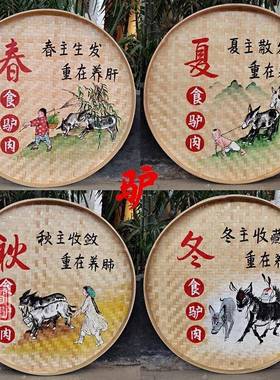 春
春主生发
重在养肝
食驴肉
夏
夏主散
重在养
食驴肉
驴
秋
秋主收敛
重在养肺
食驴肉
冬
冬主收藏
重在养
食驴肉